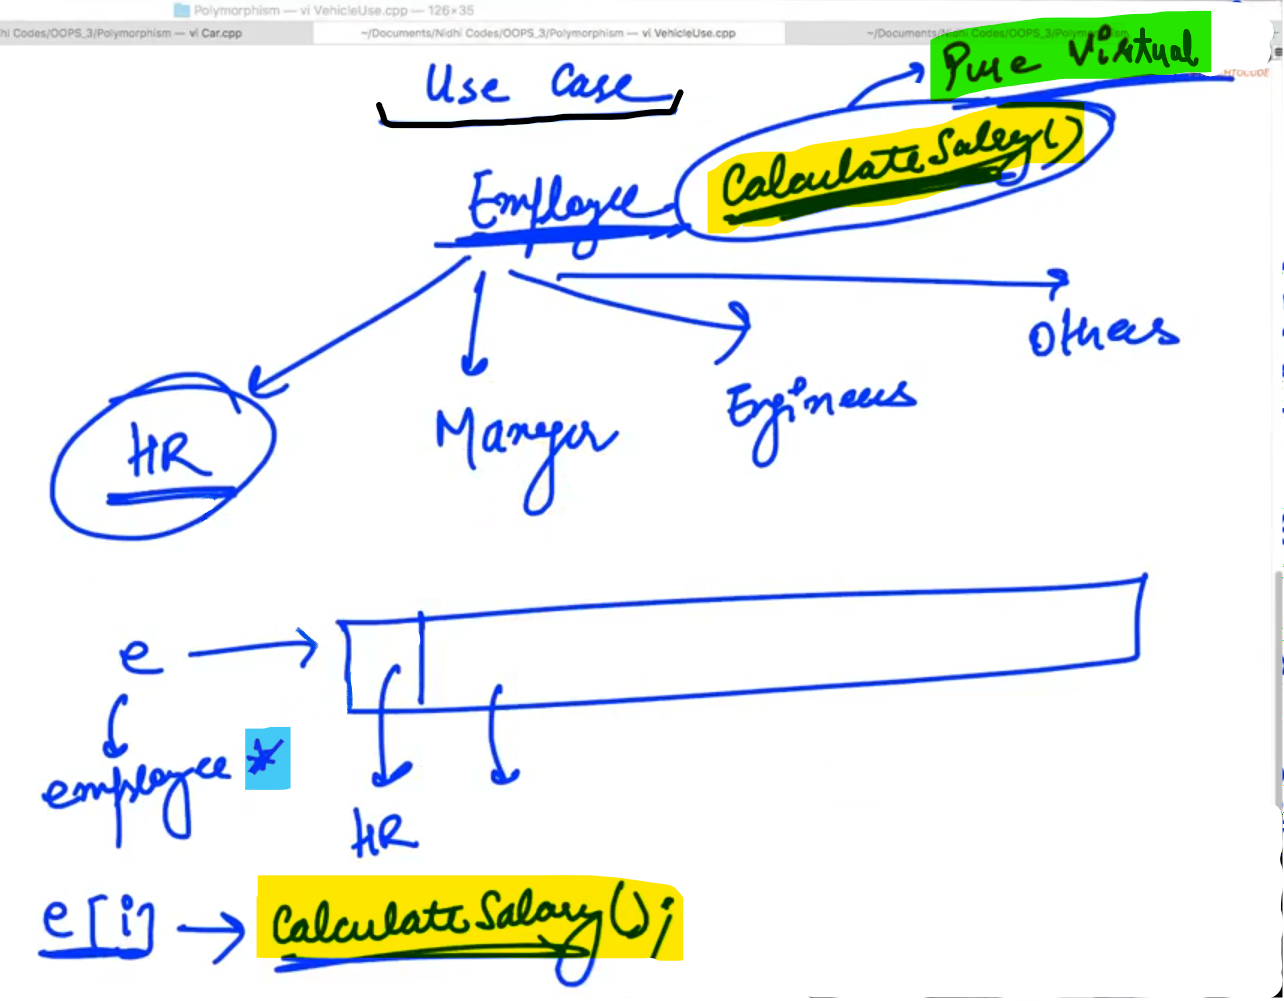 Polymorphism — vi VehicleUse.cpp — 126×35
hi Codes/OOPS_3/Polymorphism — vi Car.cpp
~/Documents/Nidhi Codes/OOPS_3/Polymorphism — vi VehicleUse.cpp
~/Documents/Nidhi Codes/OOPS_3/Polymorphism
Pure Virtual
Use Case
Calculate Salary()
Employee
Others
Engineers
Manager
HR
e
employee *
HR
e[i] → Calculate Salary();